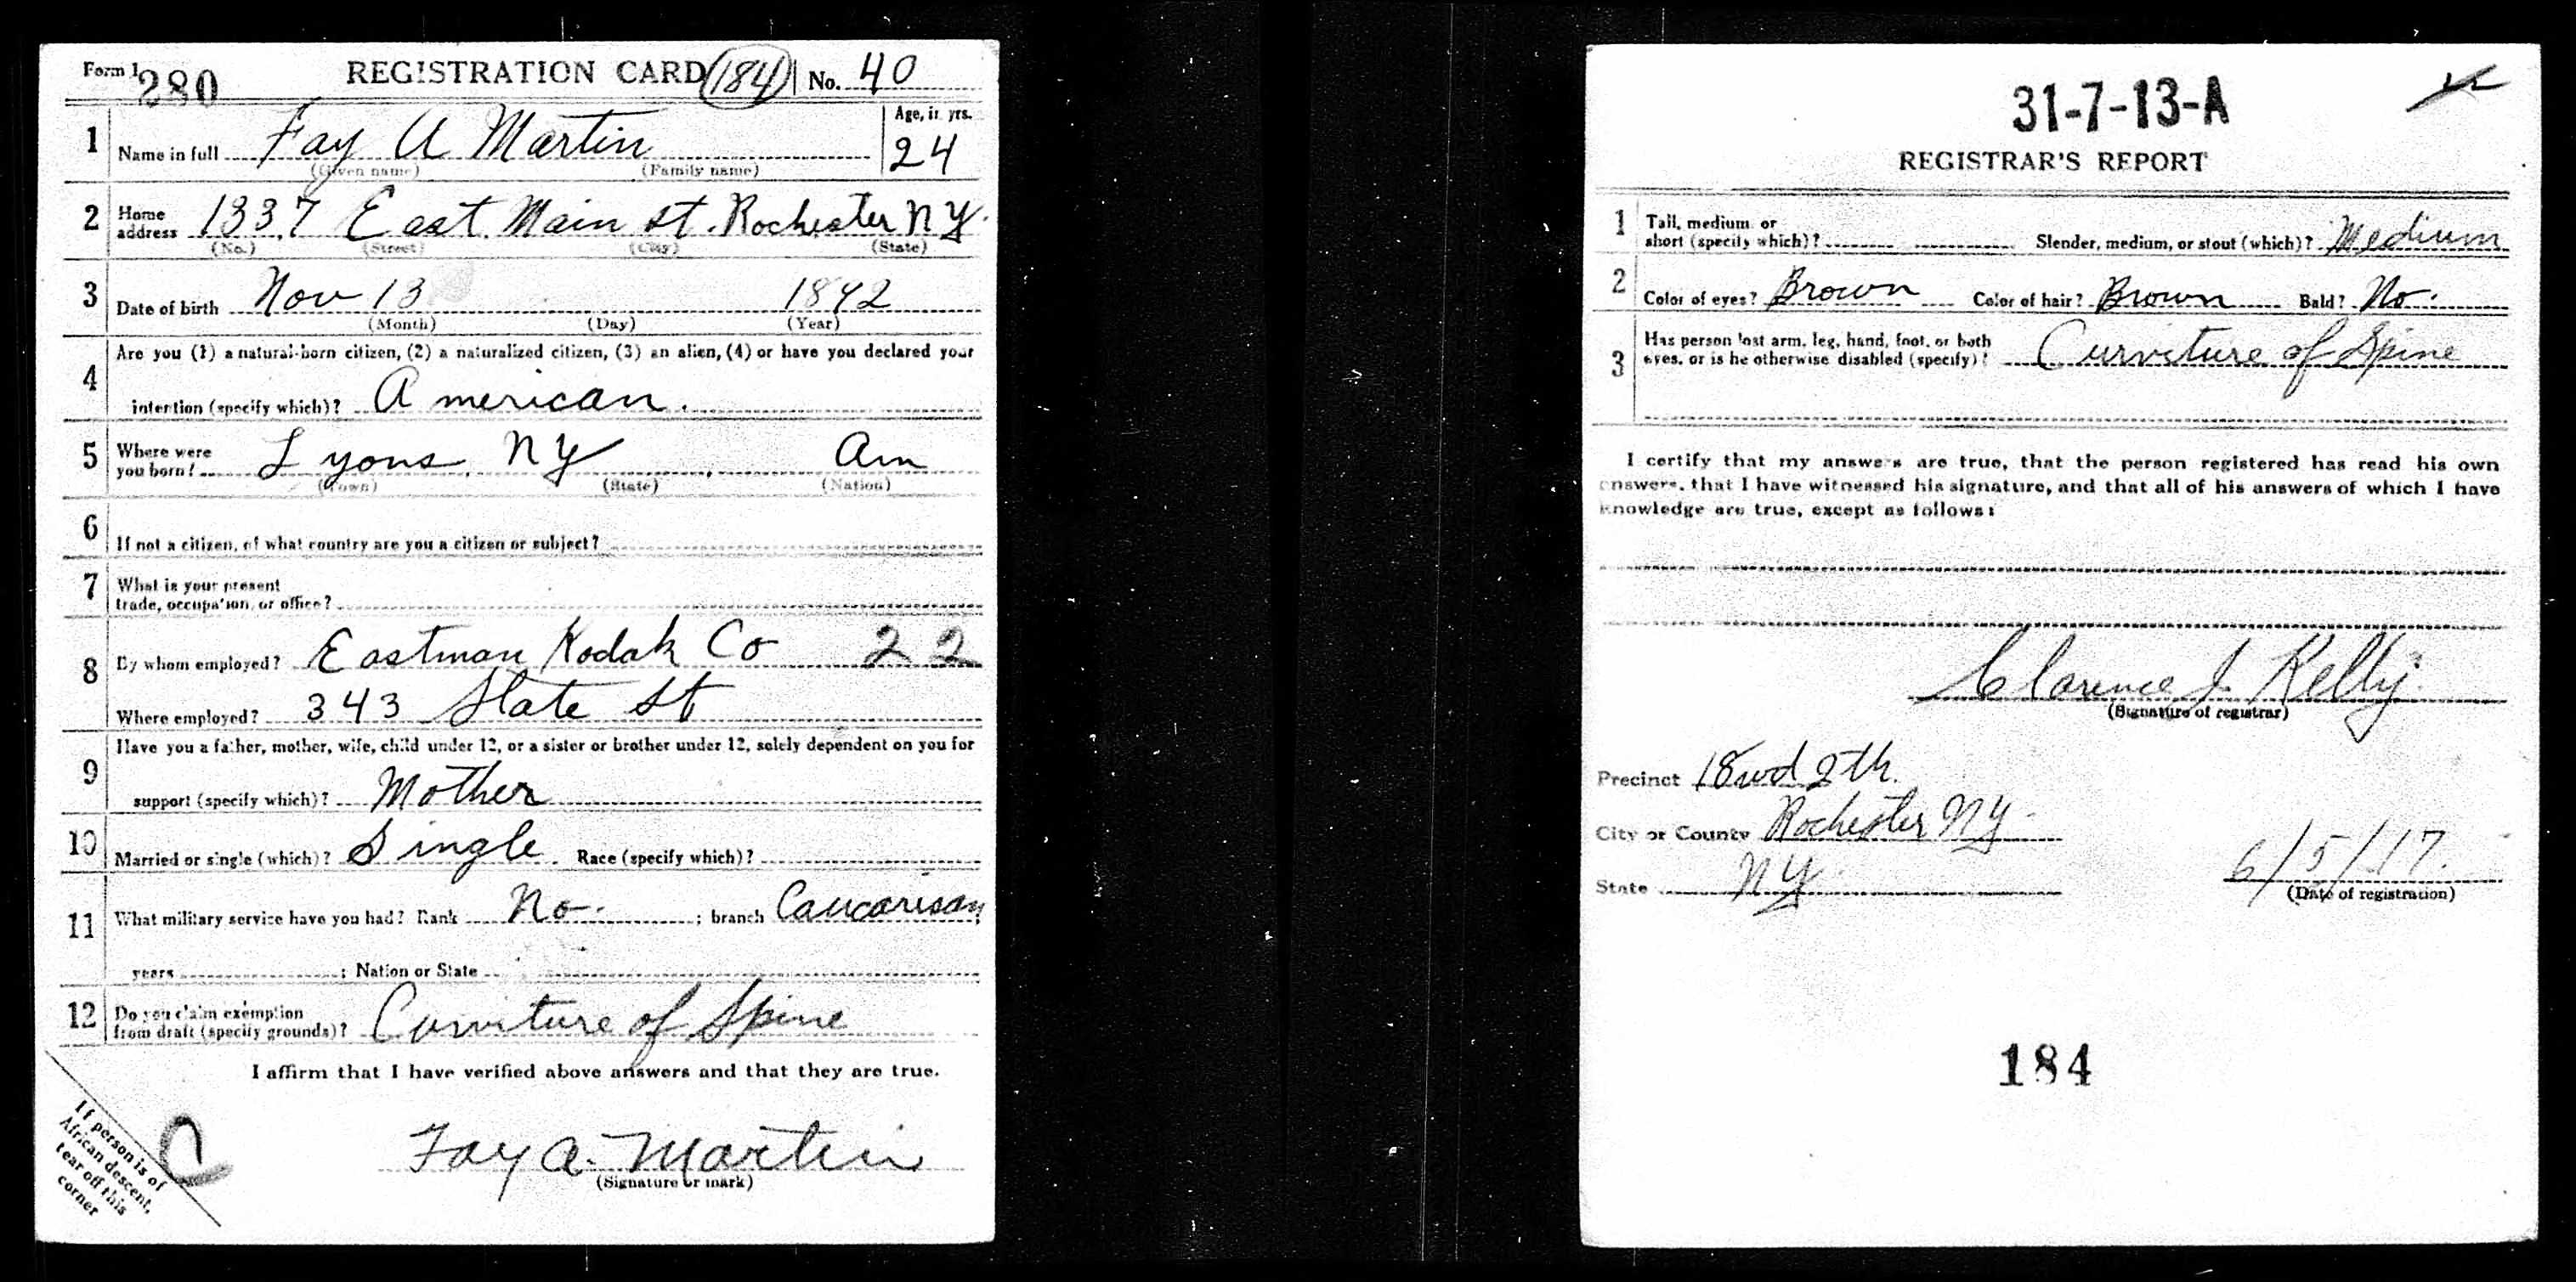 Form 1 280 REGISTRATION CARD (184) No. 40
1 Name in full Fay A Martin Age, in yrs. 24
(Given name) (Family name)
2 Home address 1337 East Main St. Rochester NY.
(No.) (Street) (City) (State)
3 Date of birth Nov 13 1892
(Month) (Day) (Year)
Are you (1) a natural-born citizen, (2) a naturalized citizen, (3) an alien, (4) or have you declared your
4 intention (specify which)? American.
5 Where were you born? Lyons, NY, Am
(Town) (State) (Nation)
6 If not a citizen, of what country are you a citizen or subject?
7 What is your present
trade, occupation, or office?
8 By whom employed? Eastman Kodak Co 22
Where employed? 343 State St
9 Have you a father, mother, wife, child under 12, or a sister or brother under 12, solely dependent on you for
support (specify which)? Mother
10 Married or single (which)? Single Race (specify which)?
11 What military service have you had? Rank No. ; branch Caucarisan;
years ; Nation or State
12 Do you claim exemption
from draft (specify grounds)? Curviture of Spine
I affirm that I have verified above answers and that they are true.
Fay A. Martin
(Signature or mark)
If person is of
African descent,
tear off this
corner
C
31-7-13-A
REGISTRAR'S REPORT
1 Tall, medium, or
short (specify which)? Slender, medium, or stout (which)? Medium
2 Color of eyes? Brown Color of hair? Brown Bald? No.
3 Has person lost arm, leg, hand, foot, or both
eyes, or is he otherwise disabled (specify)? Curviture of Spine
I certify that my answers are true, that the person registered has read his own
answers, that I have witnessed his signature, and that all of his answers of which I have
knowledge are true, except as follows:
Clarence J. Kelly
(Signature of registrar)
Precinct 18 wd 2th.
City or County Rochester NY.
State NY 6/5/17.
(Date of registration)
184